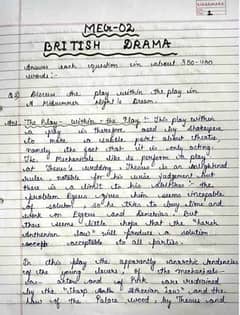 1
MEG-02
BRITISH DRAMA
Answer each question in about 350-400
words:-
Q.2) Discuss the play within the play in
A Midsummer Night's Dream.
Ans: The Play-Within-the Play:- This play within
a play is therefore used by Shakespeare
to make a subtle point about theatre,
namely the fact that it is only acting.
The Mechanicals like to perform it play
at Theseus's wedding. Theseus is an enlightened
ruler notable for his wise judgement but
there is a limit to his abilities:- the
problem Egeus gives him seems incapable
of solution so he tries to buy time and
work on Egeus and Demetrius. But
there seems little hope that the "harsh
Anthenian law" will produce a solution
acceptable to all parties.
In this play the apparently anarchic tendencies
of the young lovers, of the mechanicals-
as- actors and of Puck are restrained
by the "sharp Athenian law" and the
law of the Palace Wood, by Theseus and